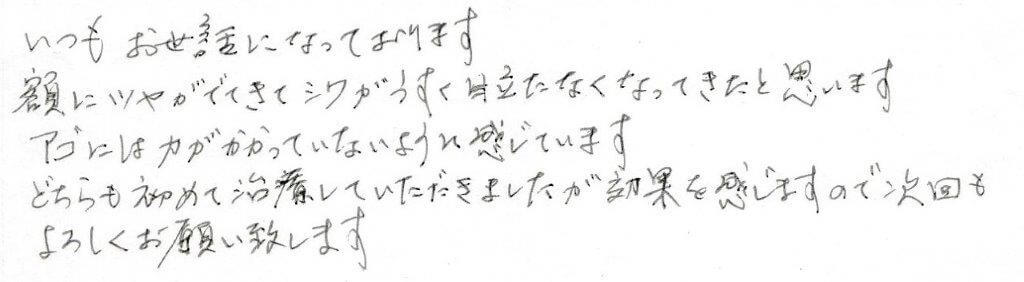 いつもお世話になっております
額にツヤがでてきてシワがうすく目立たなくなってきたと思います
アゴには力がかかっていないように感じています
どちらも初めて治療していただきましたが効果を感じますので次回も
よろしくお願い致します